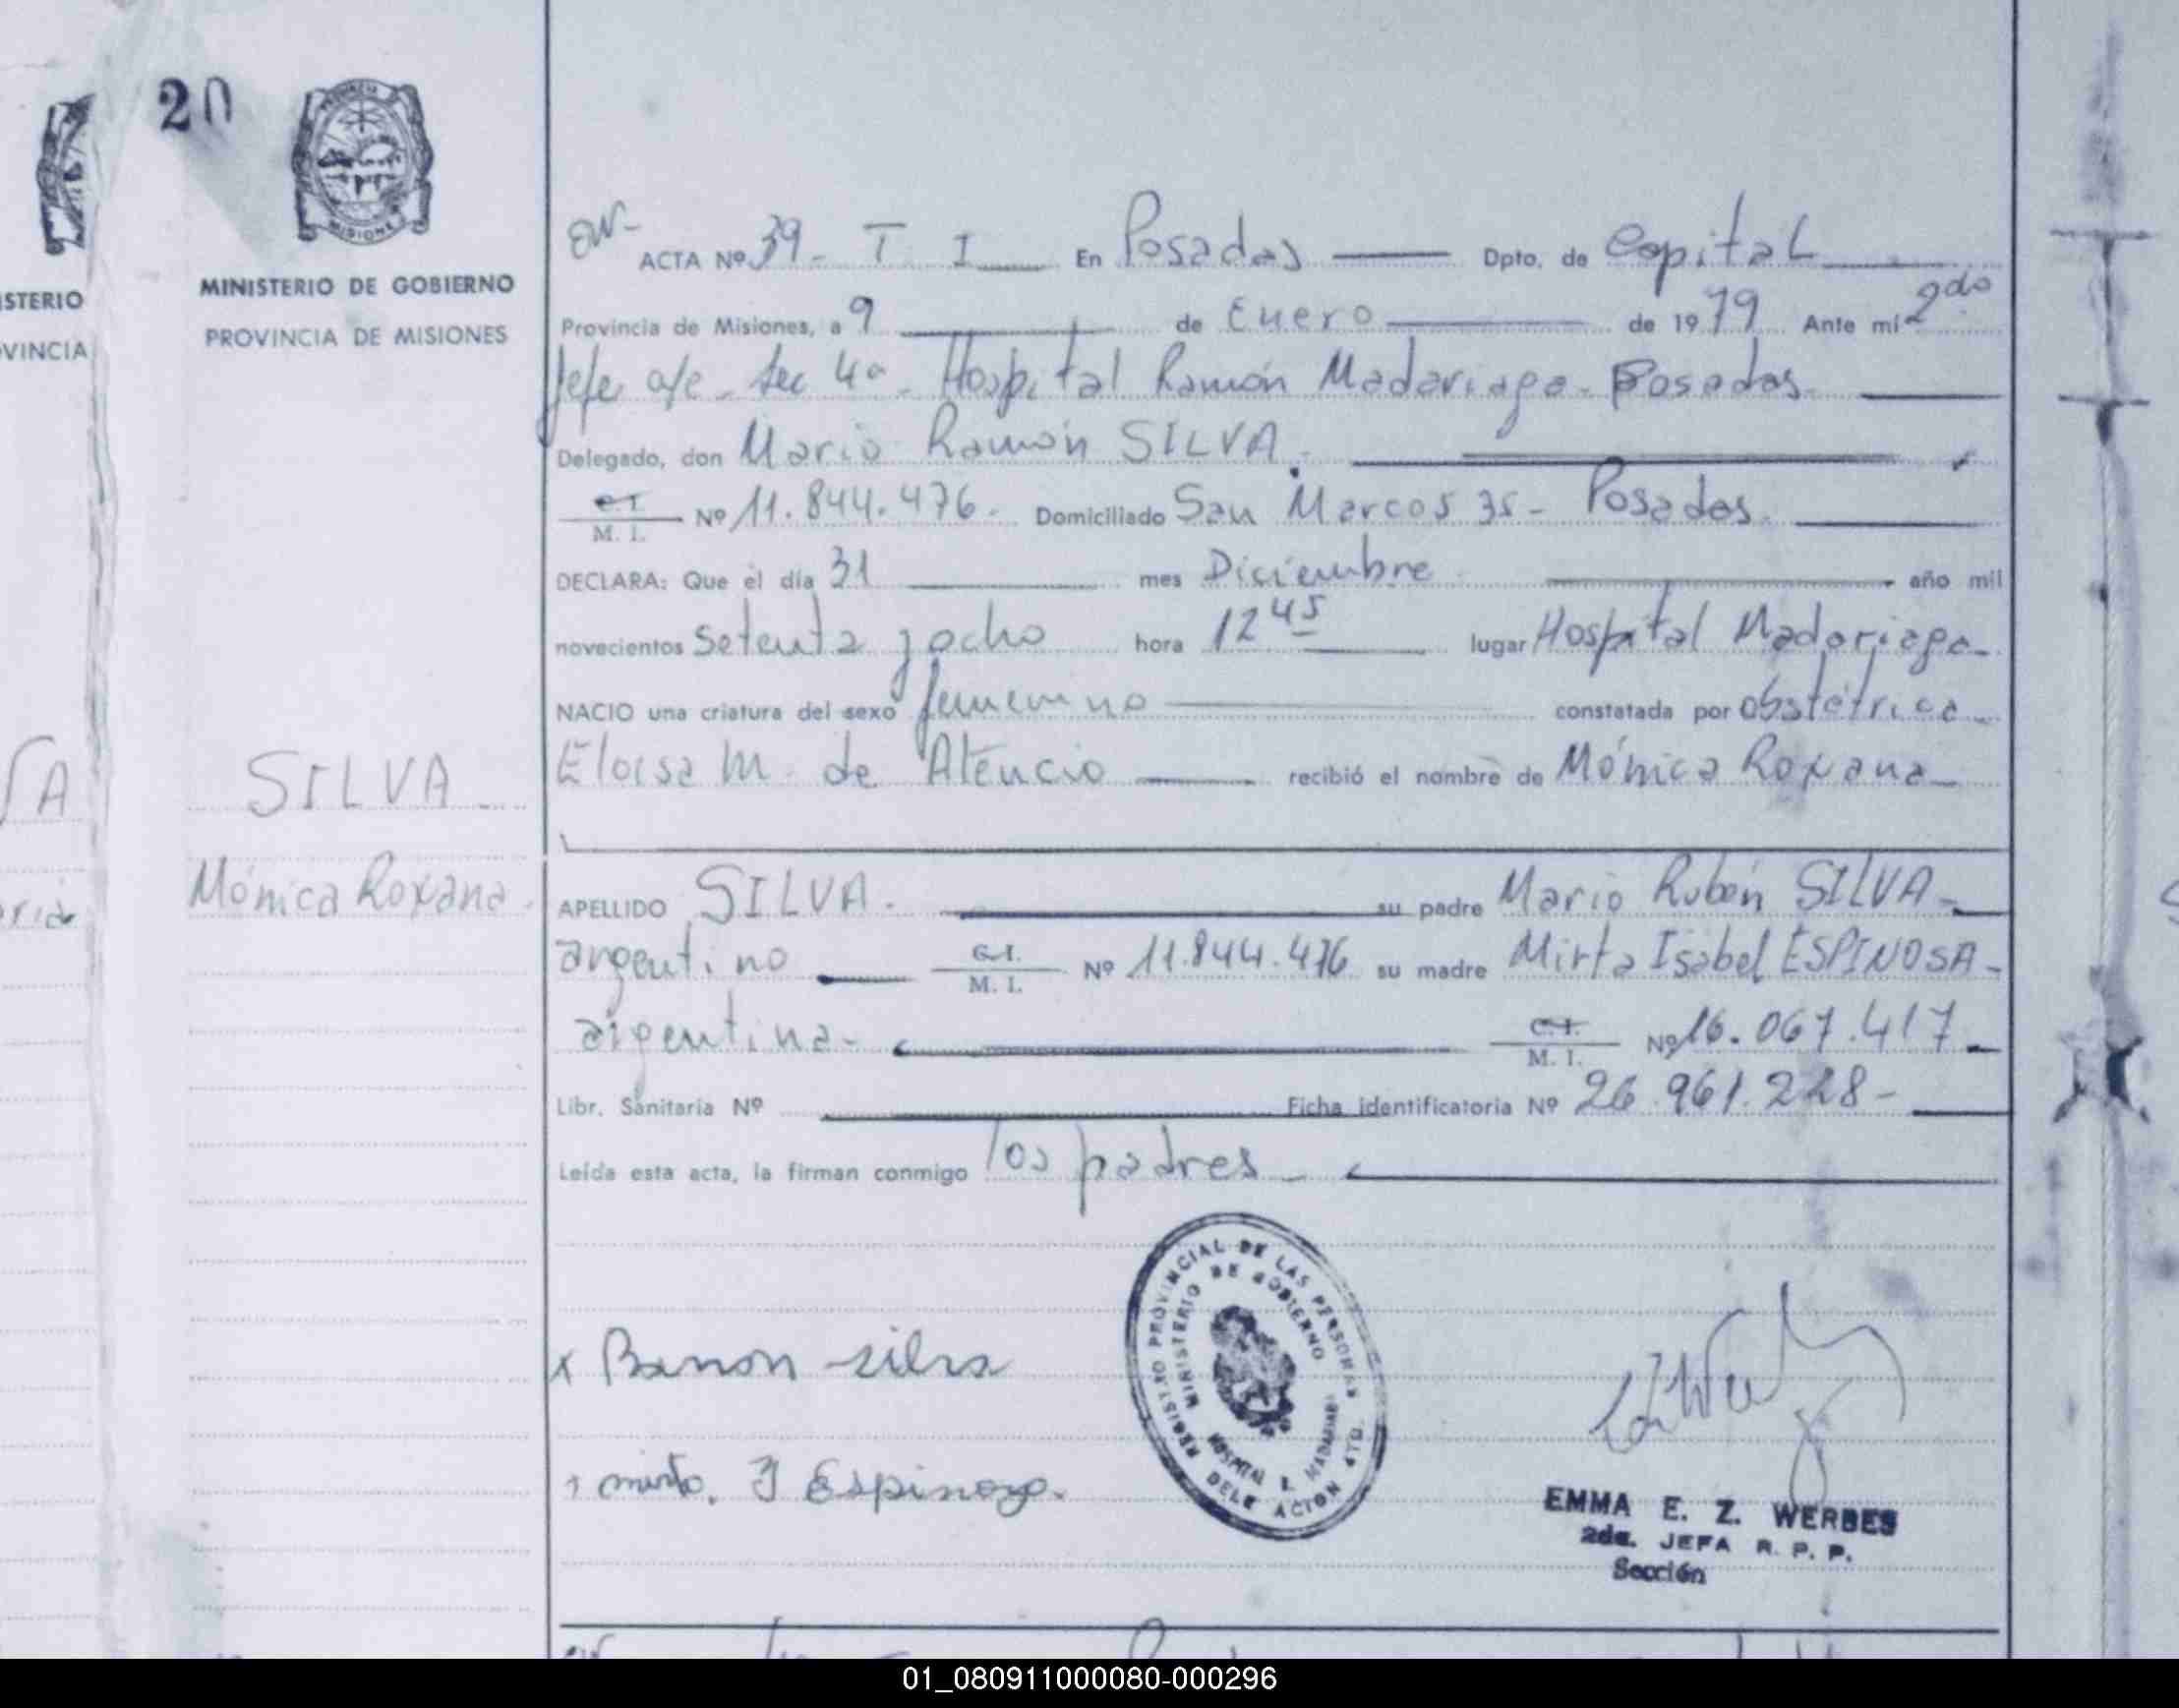 20
PROVINCIA
MISIONES
MINISTERIO DE GOBIERNO
PROVINCIA DE MISIONES
STERIO
VINCIA
ACTA Nº 39 - T I En Posadas Dpto. de Capital
Provincia de Misiones, a 9 de Enero de 1979 Ante mi 2do
Jefe a/c - Sec 4a - Hospital Ramón Madariaga - Posadas -
Delegado, don Mario Ramón SILVA.
C.I.
M. I. Nº 11.844.476. Domiciliado San Marcos 35 - Posadas.
DECLARA: Que el día 31 mes Diciembre año mil
novecientos setenta y ocho hora 12 45 lugar Hospital Madariaga -
NACIO una criatura del sexo femenino constatada por obstétrica -
Eloisa M. de Atencio recibió el nombre de Mónica Roxana -
SILVA -
Mónica Roxana -
APELLIDO SILVA. su padre Mario Rubén SILVA -
argentino C.I. M. I. Nº 11.844.476 su madre Mirta Isabel ESPINOSA -
argentina - C.I. M. I. Nº 16.067.417
Libr. Sanitaria Nº Ficha identificatoria Nº 26.961.228 -
Leída esta acta, la firman conmigo los padres -
REGISTRO PROVINCIAL DE LAS PERSONAS
MINISTERIO DE GOBIERNO
HOSPITAL R. MADARIAGA
DELEGACION 4TO.
x Ramon Silva
mirta. I Espinoza.
EMMA E. Z. WERBES
2da. JEFA R. P. P.
Sección
01_080911000080-000296